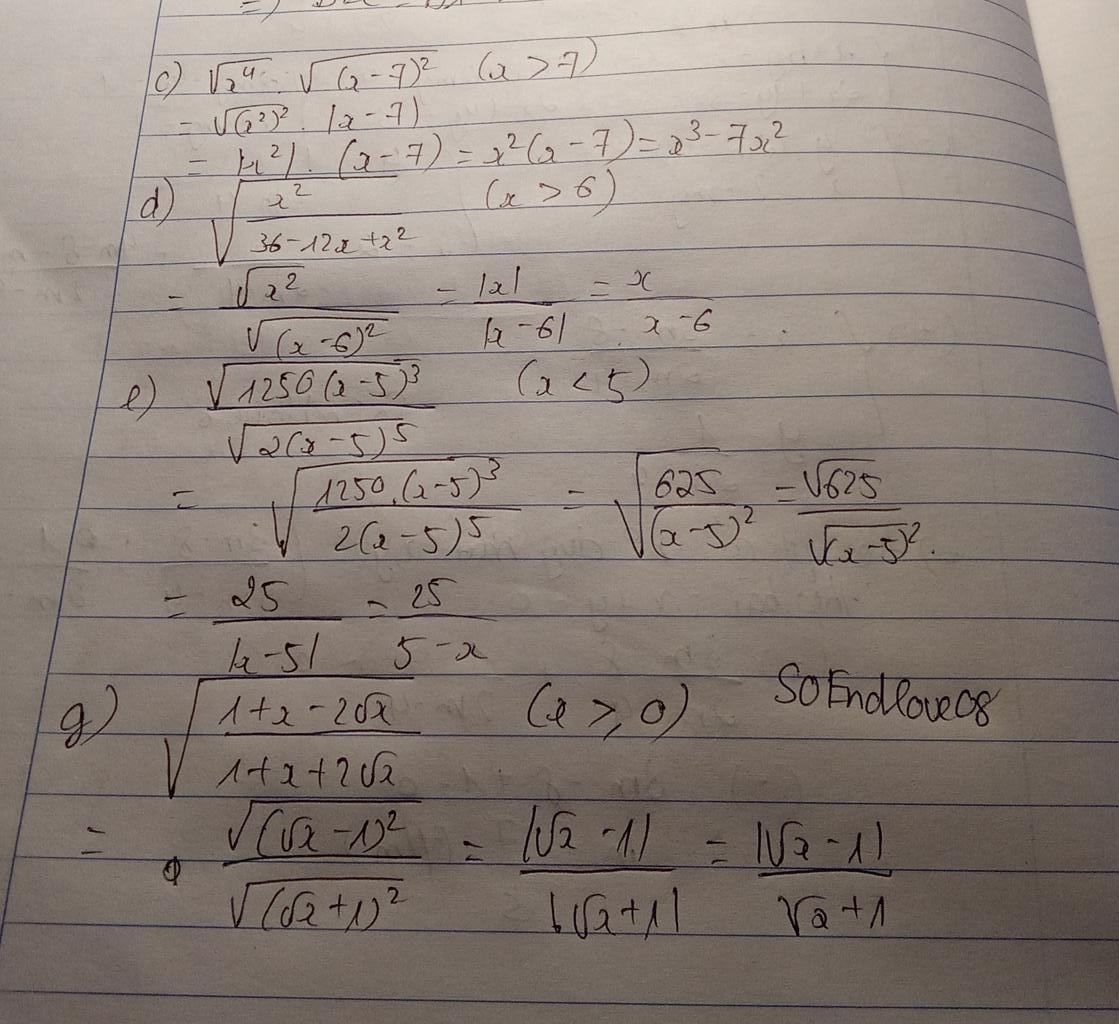 c) √x⁴ . √(x-7)² (x > 7)
= √(x²)² . |x-7|
= |x²| . (x-7) = x²(x-7) = x³-7x²
d) √(x²/(36-12x+x²)) (x > 6)
= √x²/√(x-6)² = |x|/|x-6| = x/(x-6)
e) √1250(x-5)³/√2(x-5)⁵ (x < 5)
= √(1250.(x-5)³/2(x-5)⁵) = √(625/(x-5)²) = √625/√(x-5)².
= 25/|x-5| = 25/(5-x)
g) √((1+x-2√x)/(1+x+2√x)) (x ⩾ 0) SoEndlove08
= √(√x-1)²/√(√x+1)² = |√x-1|/|√x+1| = |√x-1|/(√x+1)